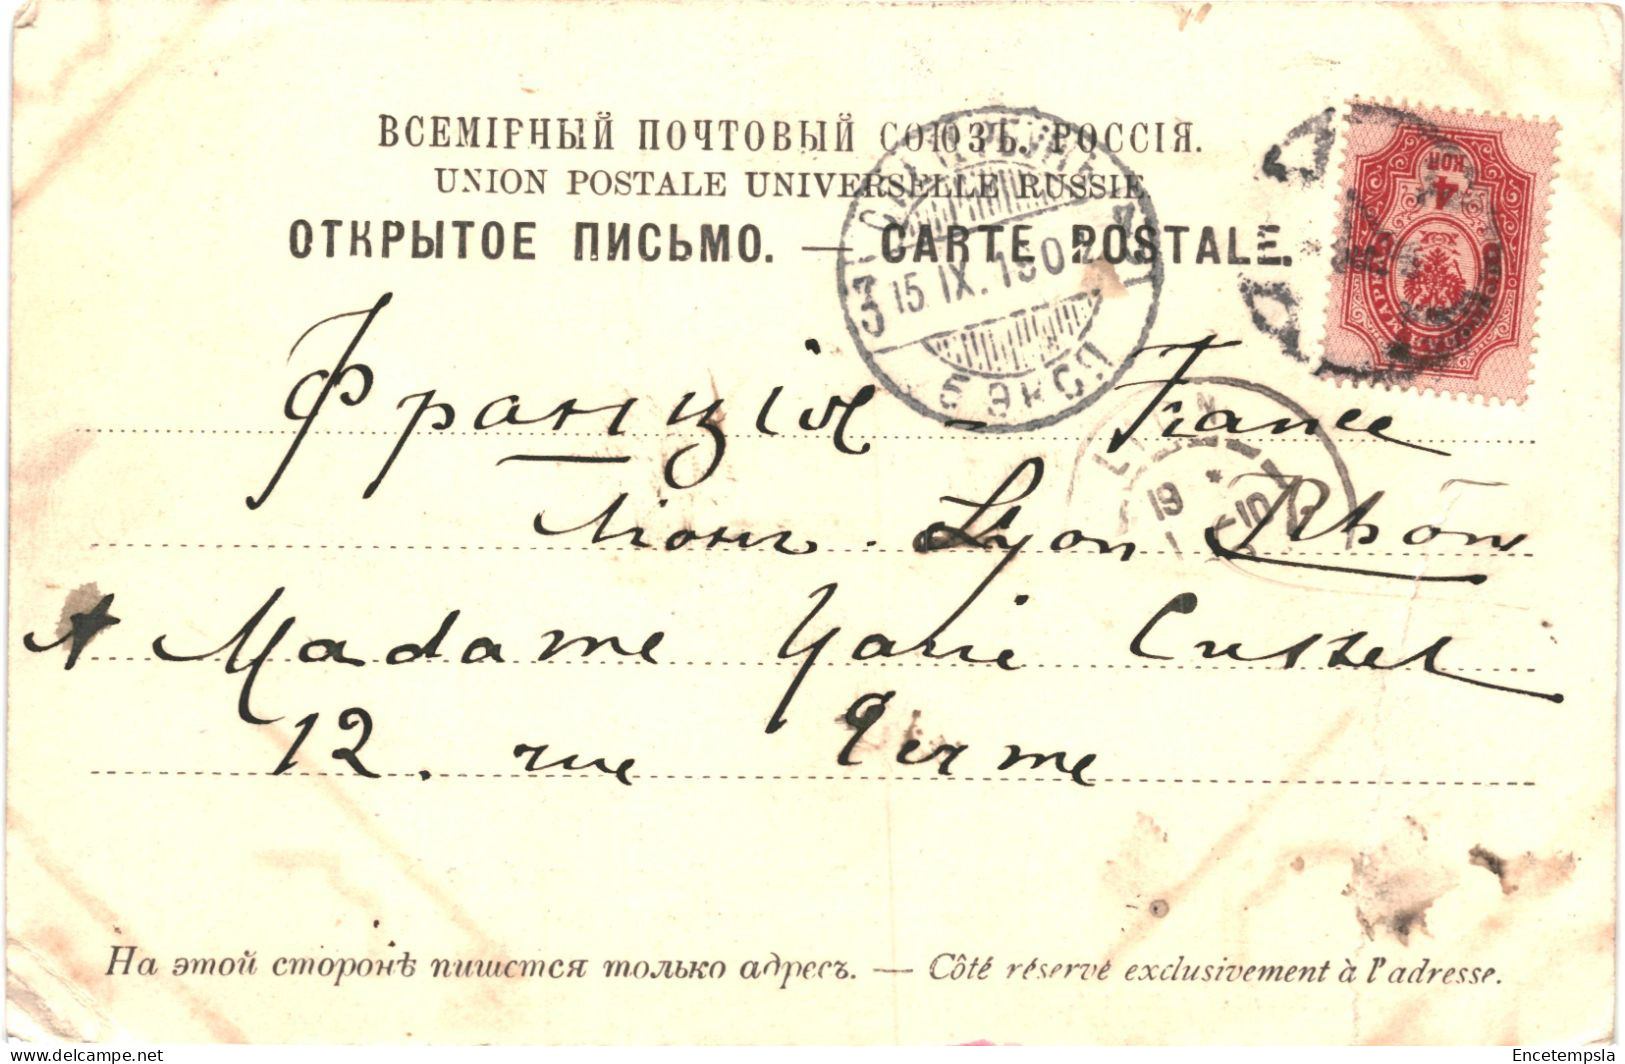 ВСЕМІРНЫЙ ПОЧТОВЫЙ СОЮЗЪ. РОССІЯ.
UNION POSTALE UNIVERSELLE RUSSIE
ОТКРЫТОЕ ПИСЬМО. — CARTE POSTALE.
4
КОП
3
15 IX. 1902
Франція - France
Ліонъ. Lyon Rhône
19
A Madame Marie Cusset
12. rue
На этой сторонѣ пишется только адресъ. — Côté réservé exclusivement à l'adresse.
delcampe.net
Encetempsla